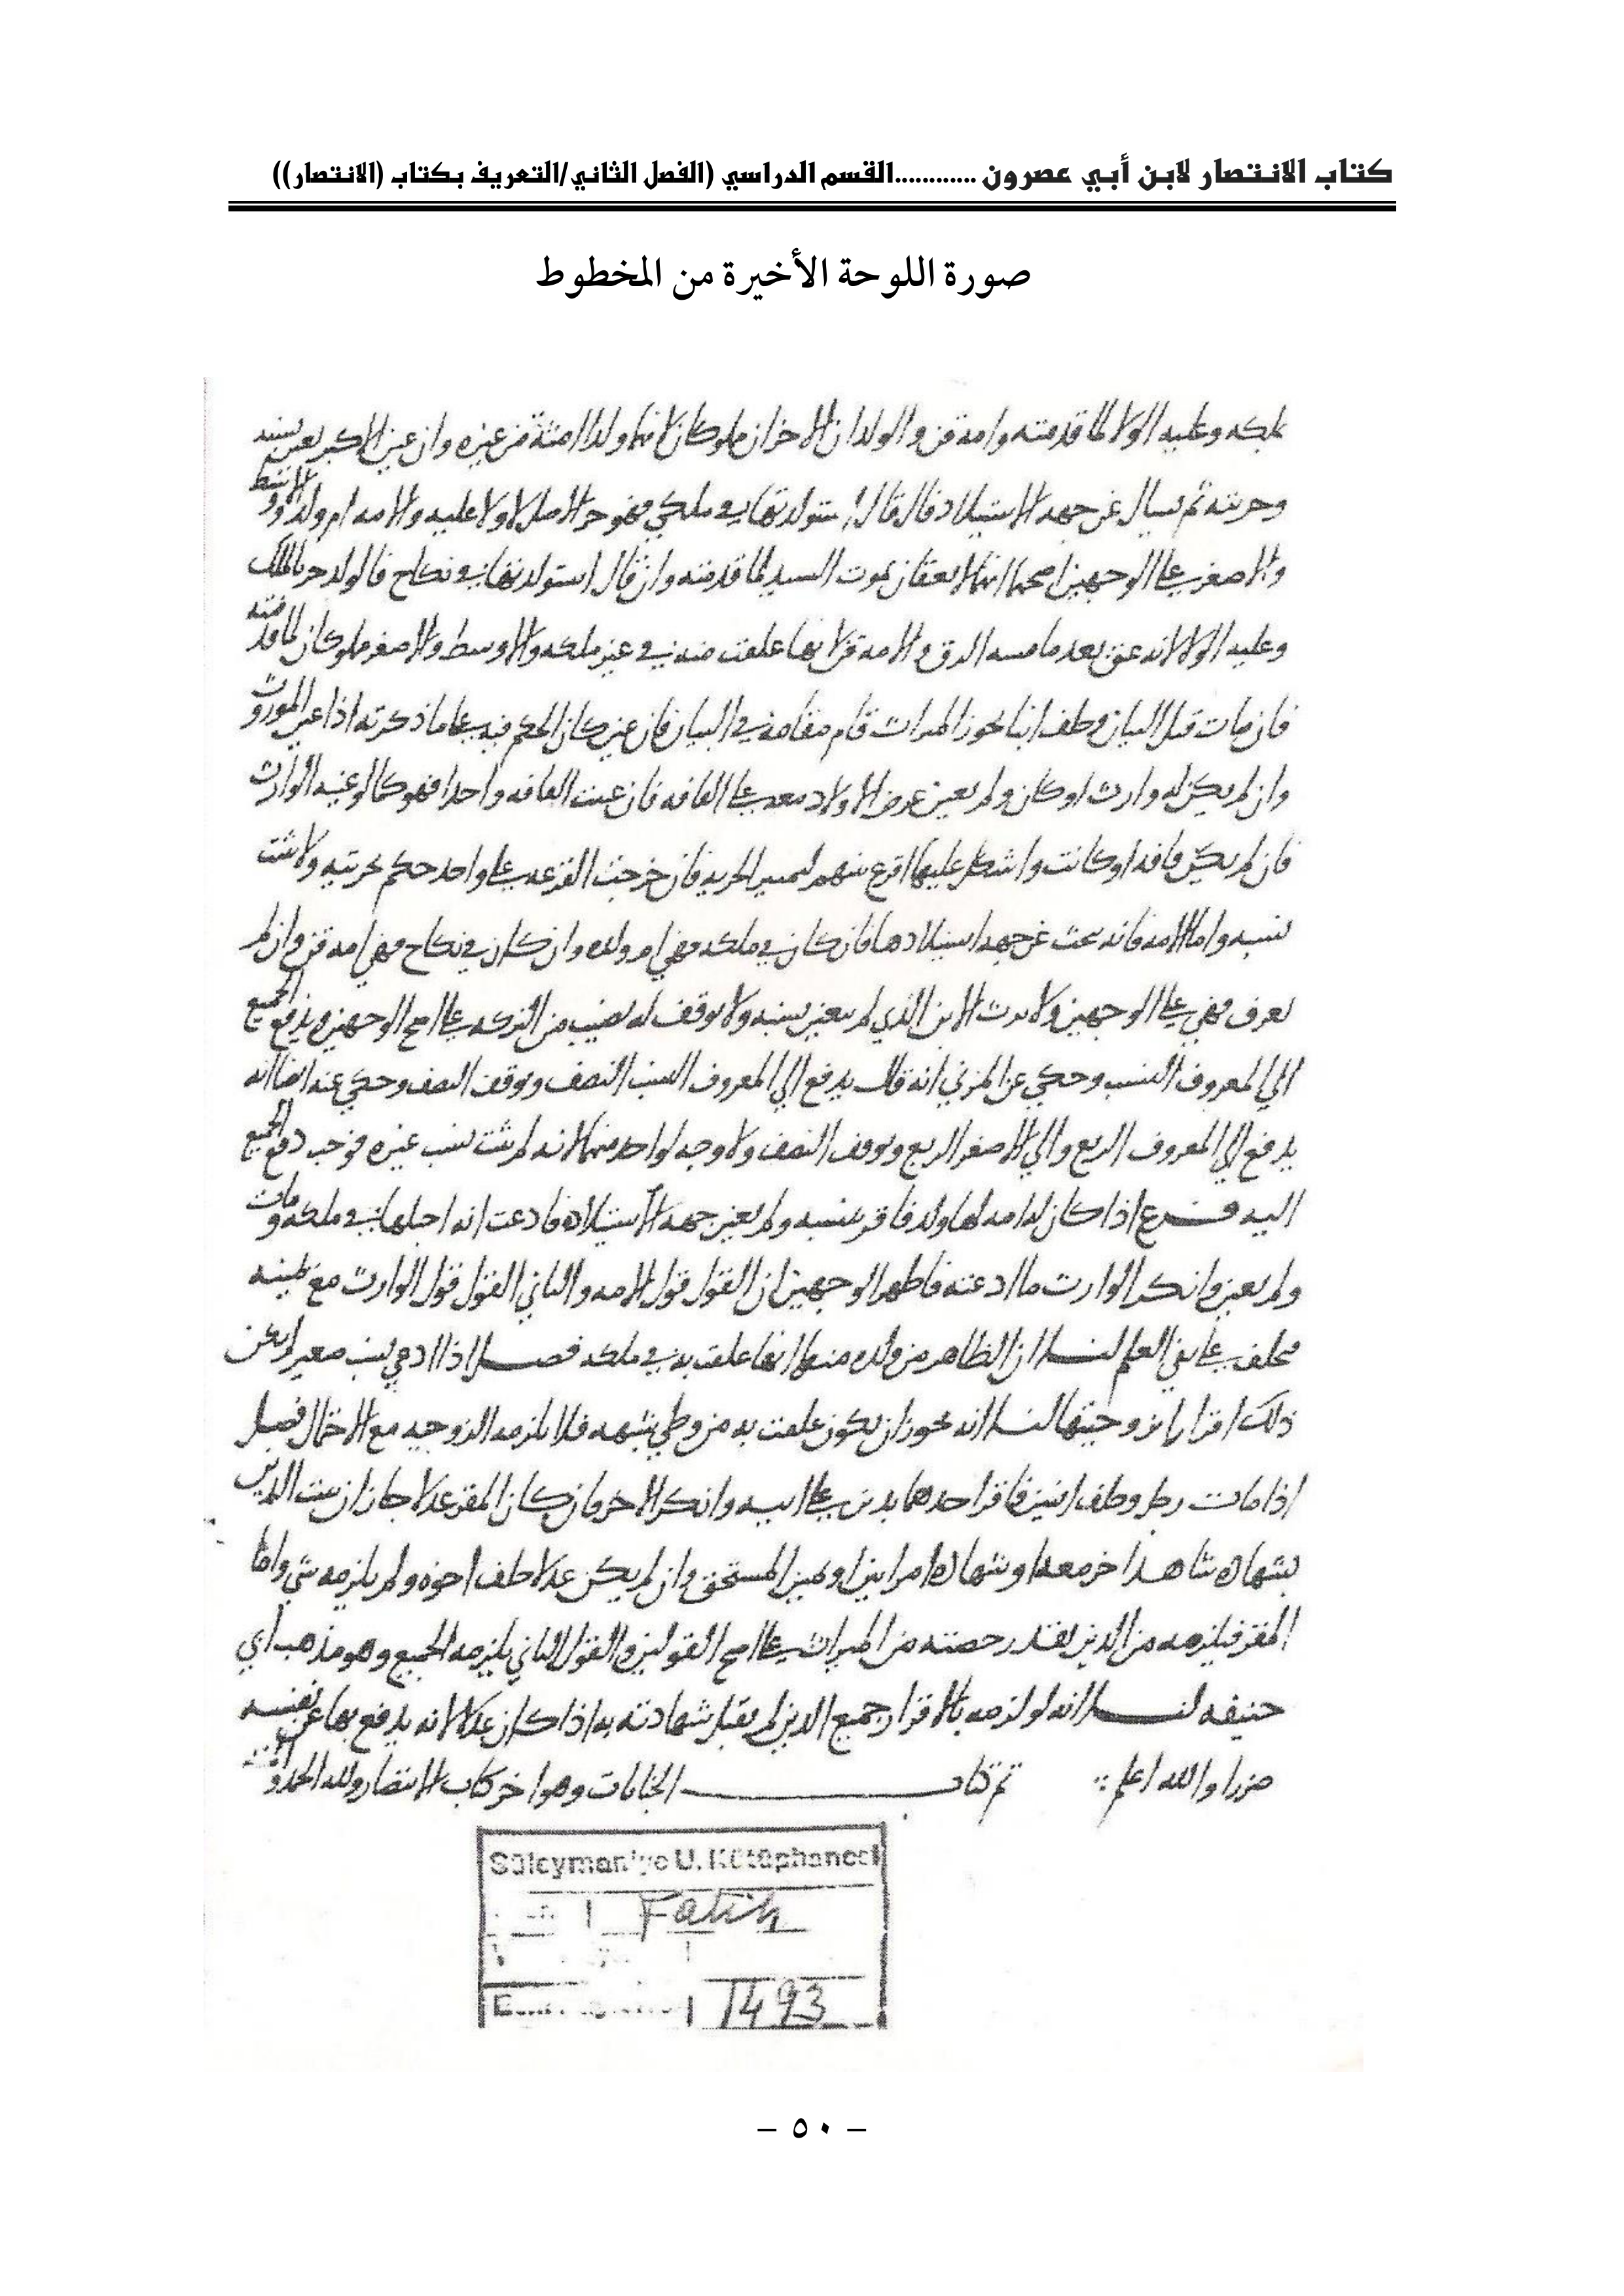 كتاب الانتصار لابن أبي عصرون ............القسم الدراسي (الفصل الثاني/التعريف بكتاب (الانتصار))
صورة اللوحة الأخيرة من المخطوط
وعليه الولا لما قدمته وامه قن والولدان الاخران مملوكان لانهما ولدا امته من غيره وان عين الاكبر تعين نسبه
وحريته ثم يسال عن جهه الاستيلاد فان قال استولدتها في ملكي فهو حر الاصل لا ولا عليه والامه ام ولد والاوسط
والاصغر على الوجهين اصحهما انهما لا يعتقان بموت السيد لما قدمته وان قال استولدتها في نكاح فالولد حر بالملك
وعليه الولا لانه عتق بعد ما مسه الرق والامه قن لانها علقت منه في غير ملكه والاوسط والاصغر مملوكان لما قدمته
فان مات قبل البيان وخلف ابنا يحوز الميراث قام مقامه في البيان فان عين كان الحكم فيه على ما ذكرته اذا عين الموروث
وان لم يكن له وارث او كان ولم يعين عرض الاولاد معه على القافه فان عينت القافه واحدا فهو كما لو عينه الوارث
فان لم يكن قافه او كانت واشكل عليها اقرع بينهم لتمييز الحريه فان خرجت القرعه على واحد حكم بحريته ولا يثبت
نسبه واما الامه فانه يبحث عن جهه استيلادها فان كان في ملكه فهي ام ولده وان كان في نكاح فهي امه قن وان لم
يعرف فهي على الوجهين ولا يرث الابن الذي لم يتعين نسبه ولا يوقف له نصيب من التركه على اصح الوجهين ويدفع الجميع
الي المعروف النسب وحكي عن المزني انه قال يدفع الي المعروف النسب النصف ويوقف النصف وحكي عنه ايضا انه
يدفع الي المعروف الربع والي الاصغر الربع ويوقف النصف ولا وجه لواحد منهما لانه لم يثبت نسب غيره فوجب دفع الجميع
اليه فرع اذا كان له امه لها ولد فاقر بنسبه ولم يعين جهه الاستيلاد فادعت انه احبلها في ملكه ومات
ولم يعين وانكر الوارث ما ادعته فاظهر الوجهين ان القول قول الامه والثاني القول قول الوارث مع يمينه
يحلف على نفي العلم لنا ان الظاهر من ولده منها انها علقت به في ملكه فصل اذا ادعي نسب صغير لم يكن
ذلك اقرارا بزوجيتها لنا انه يجوز ان يكون علقت به من وطي شبهه فلا يلزمه الزوجيه مع الاحتمال فصل
اذا مات رجل وخلف ابنين فاقر احدهما بدين على ابيه وانكر الاخر فان كان المقر عدلا جاز ان يثبت الدين
بشهاده شاهد اخر معه او شهاده امراتين او يمين المستحق وان لم يكن عدلا حلف اخوه ولم يلزمه شي واما
المقر فيلزمه من الدين بقدر حصته من الميراث على اصح القولين والقول الثاني يلزمه الجميع وهو مذهب ابي
حنيفه لنا انه لو لزمه بالاقرار جميع الدين لم يقبل شهادته به اذا كان عدلا لانه يدفع بها عن نفسه
ضررا والله اعلم تم كتاب الجنايات وهو اخر كتاب الانتصار ولله الحمد
Süleymaniye U. Kütüphanesi
Fatih
1493
– ٥٠ –